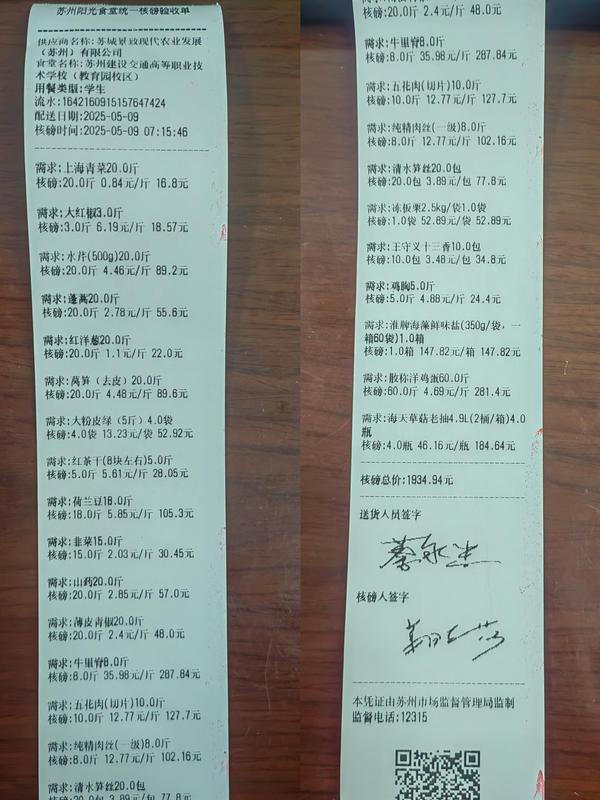 苏州阳光食堂统一核磅验收单
供应商名称:苏城景致现代农业发展
（苏州）有限公司
食堂名称:苏州建设交通高等职业技
术学校（教育园校区）
用餐类型:学生
流水:1642160915157647424
配送日期:2025-05-09
核磅时间:2025-05-09 07:15:46
需求:上海青菜20.0斤
核磅:20.0斤 0.84元/斤 16.8元
需求:大红椒3.0斤
核磅:3.0斤 6.19元/斤 18.57元
需求:水芹(500g)20.0斤
核磅:20.0斤 4.46元/斤 89.2元
需求:蓬蒿20.0斤
核磅:20.0斤 2.78元/斤 55.6元
需求:红洋葱20.0斤
核磅:20.0斤 1.1元/斤 22.0元
需求:莴笋（去皮）20.0斤
核磅:20.0斤 4.48元/斤 89.6元
需求:大粉皮绿（5斤）4.0袋
核磅:4.0袋 13.23元/袋 52.92元
需求:红茶干(8块左右)5.0斤
核磅:5.0斤 5.61元/斤 28.05元
需求:荷兰豆18.0斤
核磅:18.0斤 5.85元/斤 105.3元
需求:韭菜15.0斤
核磅:15.0斤 2.03元/斤 30.45元
需求:山药20.0斤
核磅:20.0斤 2.85元/斤 57.0元
需求:薄皮青椒20.0斤
核磅:20.0斤 2.4元/斤 48.0元
需求:牛里脊8.0斤
核磅:8.0斤 35.98元/斤 287.84元
需求:五花肉(切片)10.0斤
核磅:10.0斤 12.77元/斤 127.7元
需求:纯精肉丝(一级)8.0斤
核磅:8.0斤 12.77元/斤 102.16元
需求:清水笋丝20.0包
核磅:20.0包 3.89元/包 77.8元
核磅:20.0斤 2.4元/斤 48.0元
需求:牛里脊8.0斤
核磅:8.0斤 35.98元/斤 287.84元
需求:五花肉(切片)10.0斤
核磅:10.0斤 12.77元/斤 127.7元
需求:纯精肉丝(一级)8.0斤
核磅:8.0斤 12.77元/斤 102.16元
需求:清水笋丝20.0包
核磅:20.0包 3.89元/包 77.8元
需求:冻板栗2.5kg/袋1.0袋
核磅:1.0袋 52.89元/袋 52.89元
需求:王守义十三香10.0包
核磅:10.0包 3.48元/包 34.8元
需求:鸡胸5.0斤
核磅:5.0斤 4.88元/斤 24.4元
需求:淮牌海藻鲜味盐(350g/袋，一
箱60袋)1.0箱
核磅:1.0箱 147.82元/箱 147.82元
需求:散称洋鸡蛋60.0斤
核磅:60.0斤 4.69元/斤 281.4元
需求:海天草菇老抽4.9L(2桶/箱)4.0
瓶
核磅:4.0瓶 46.16元/瓶 184.64元
核磅总价:1934.94元
送货人员签字
核磅人签字
本凭证由苏州市场监督管理局监制
监督电话:12315